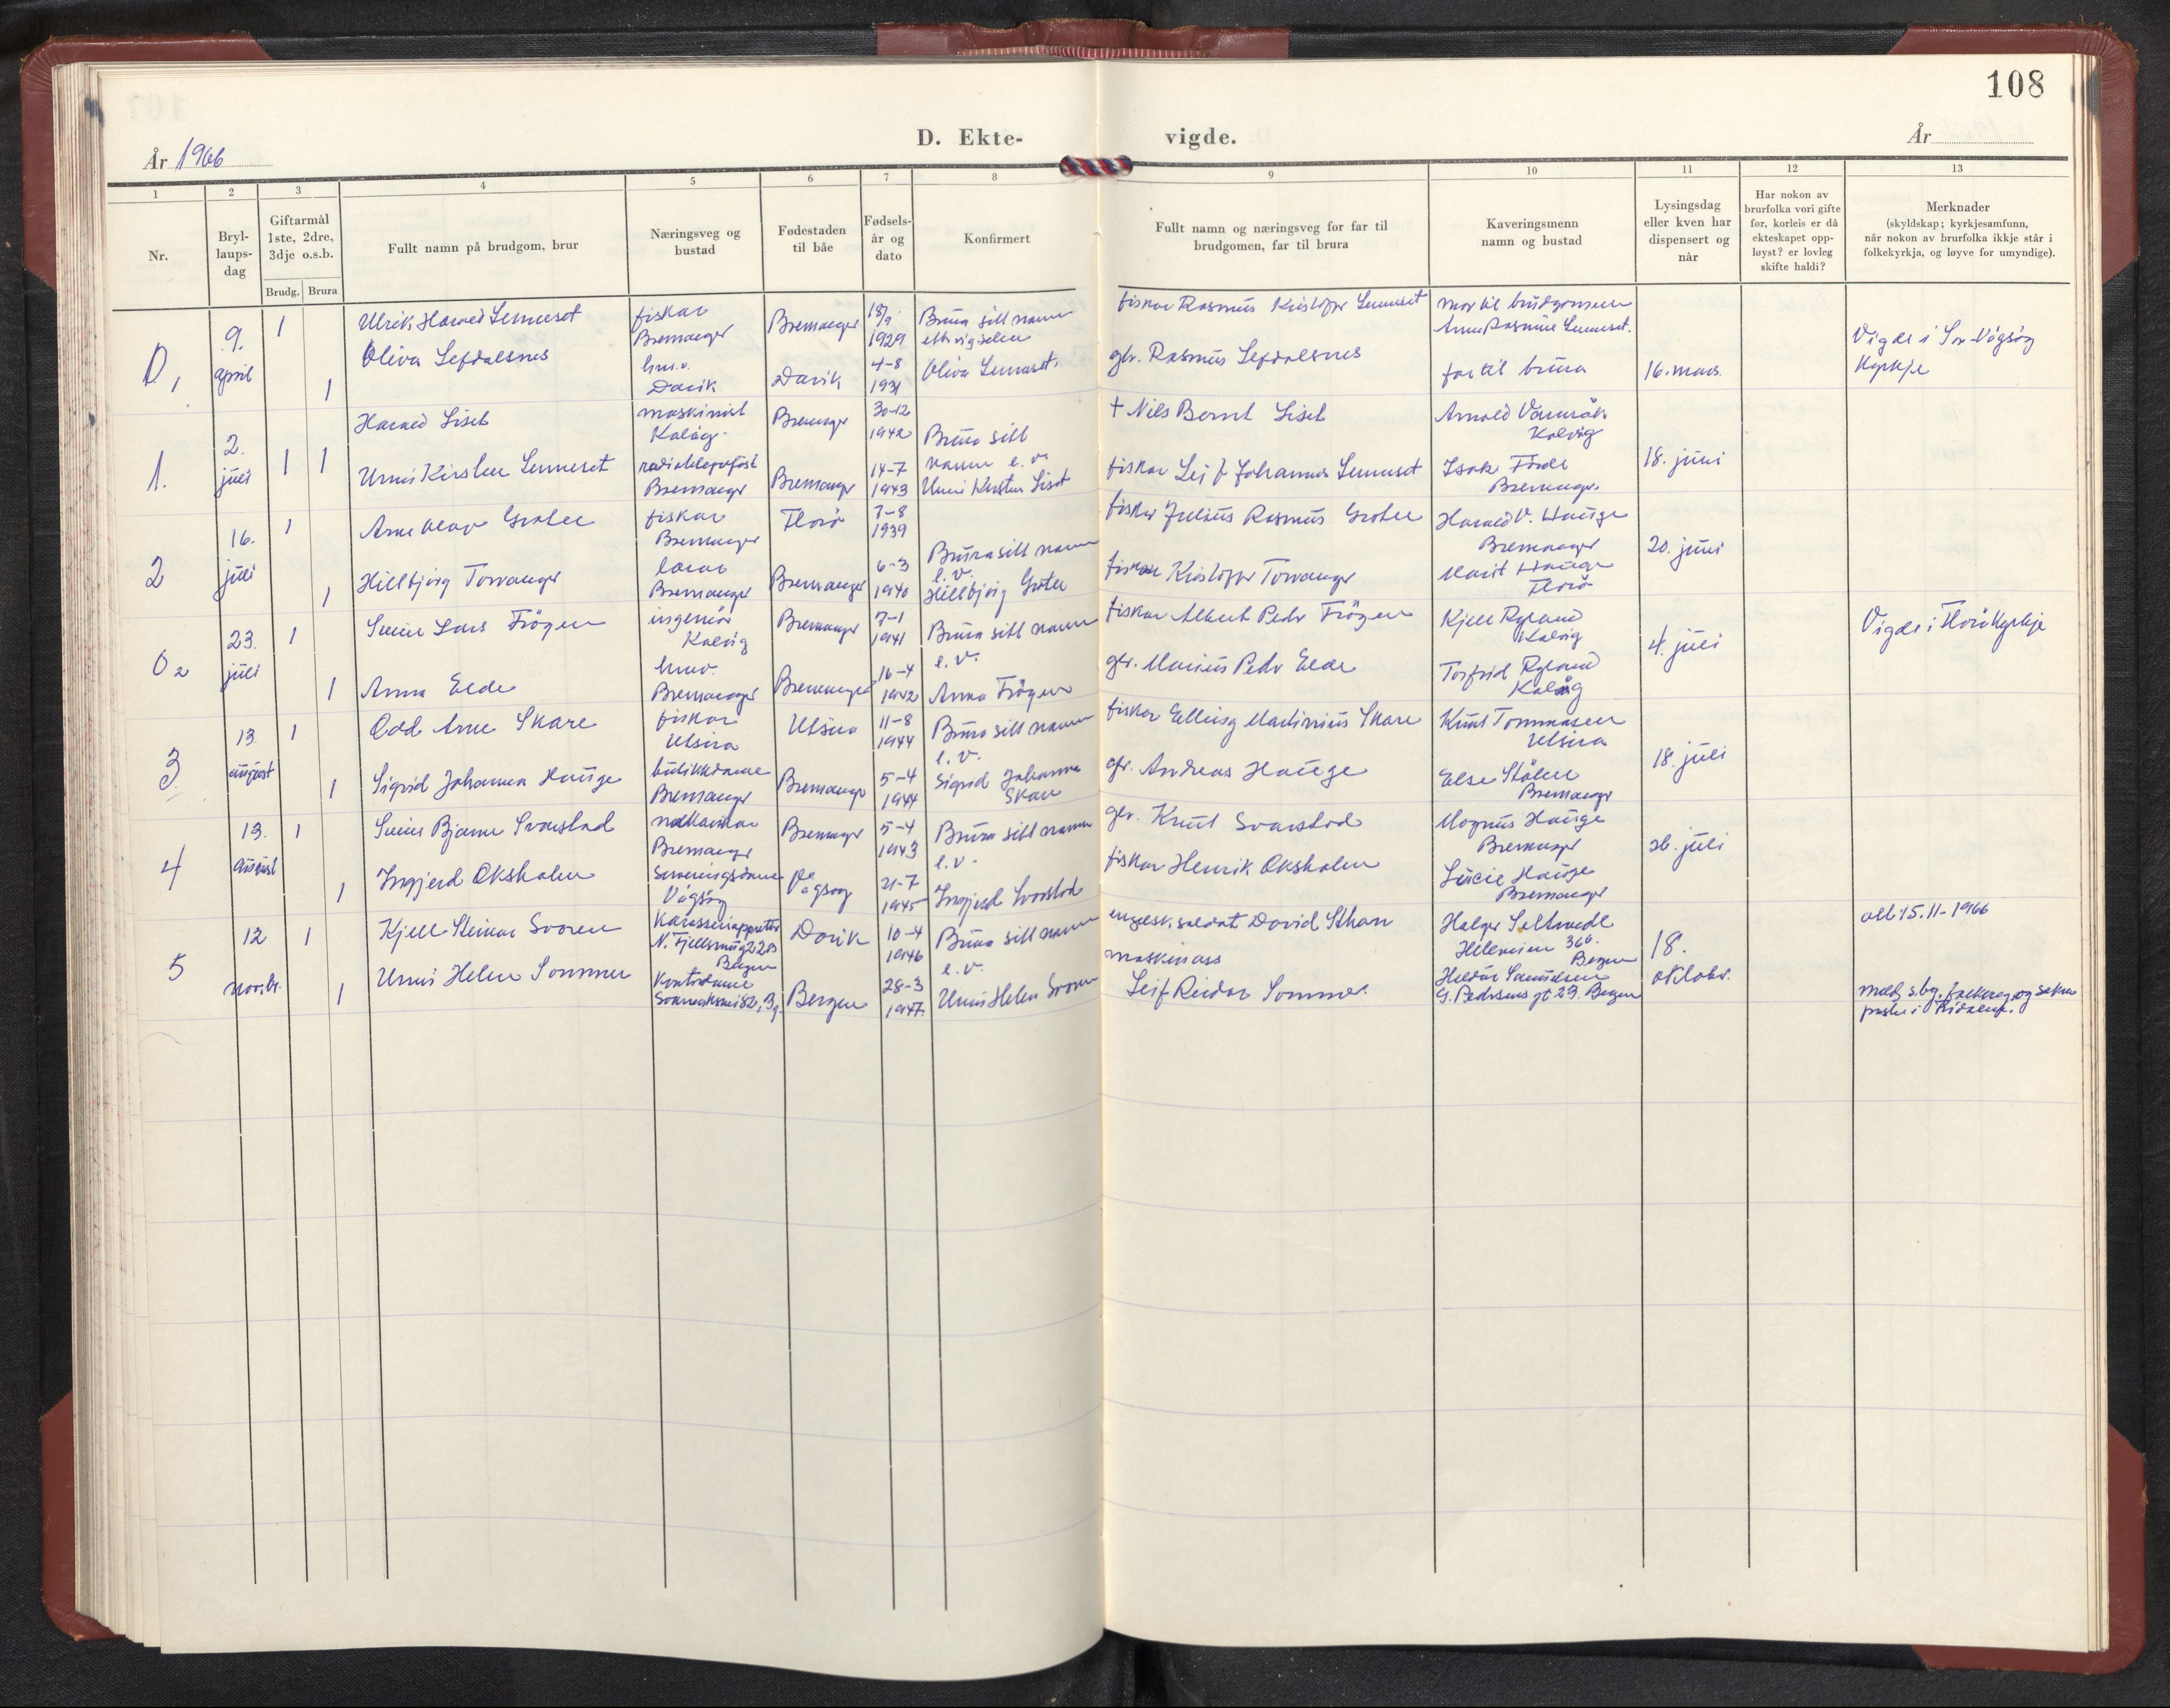 108
D. Ekte- vigde.
År 1966
År
1 2 3 4 5 6 7 8 9 10 11 12 13
Nr.
Bryl-
laups-
dag
Giftarmål
1ste, 2dre,
3dje o.s.b.
Brudg. Brura
Fullt namn på brudgom, brur
Næringsveg og
bustad
Fødestaden
til båe
Fødsels-
år og
dato
Konfirmert
Fullt namn og næringsveg for far til
brudgomen, far til brura
Kaveringsmenn
namn og bustad
Lysingsdag
eller kven har
dispensert og
når
Har nokon av
brurfolka vori gifte
før, korleis er då
ekteskapet opp-
løyst? er lovleg
skifte haldi?
Merknader
(skyldskap; kyrkjesamfunn,
når nokon av brurfolka ikkje står i
folkekyrkja, og løyve for umyndige).
0, 9. april 1
Ulrik Harald Lemeset
fiskar
Bremanger
Bremanger
18/9
1929
Brura sitt namn
etter vigselen
Oliva Lemeset.
fiskar Rasmus Kristoffer Lemeset
mor til brudgomen
Anna Rasmine Lemeset.
1
Oliva Lefdalsnes
hm.v.
Davik
Davik
4-8
1931
gbr. Rasmus Lefdalsnes
far til brura
16. mars
Vigde i Sør-Vågsøy
Kyrkje
1. 2. juli 1 1
Harald Liset
maskinist
Kalvåg
Bremanger
30-12
1942
Brura sitt
namn e. v.
Unni Kirsten Liset
† Nils Bernt Liset
Arnold
Kalvåg
Unni Kirsten Lemeset
Bremanger
Bremanger
14-7
1943
fiskar Leif Johannes Lemeset
Isak Førde
Bremanger
18. juni
2 16. juli 1
Arne Olav Grotle
fiskar
Bremanger
Florø
7-8
1939
Brura sitt namn
e. v.
Hillbjørg Grotle
fiskar Julius Rasmus Grotle
Harald V. Hauge
Bremanger
1
Hillbjørg Torvanger
lærar
Bremanger
Bremanger
6-3
1940
fiskar Kristoffer Torvanger
Marit Hauge
Florø
20. juni
0 2 23. juli 1
Svein Lars Frøyen
ingeniør
Kalvåg
Bremanger
7-1
1941
Brura sitt namn
e. v.
Anna Frøyen
fiskar Albert Peder Frøyen
Kjell Ryland
Kalvåg
1
Anna Elde
hmv.
Bremanger
Bremanger
16-4
1942
gbr. Marius Peder Elde
Torfrid Ryland
Kalvåg
4. juli
Vigde i Florø Kyrkje
3. 13. august 1
Odd Arne Skare
fiskar
Utsira
Utsira
11-8
1944
Brura sitt namn
e. v.
Sigrid Johanna
Skare
fiskar Elling Martinius Skare
Knut Tommasen
Utsira
1
Sigrid Johanna Hauge
butikkdame
Bremanger
Bremanger
5-4
1944
gbr. Andreas Hauge
Else Stølen
Bremanger
18. juli
4 13. august 1
Svein Bjarne Svarstad
Bremanger
Bremanger
5-4
1943
Brura sitt namn
e. v.
Ingjerd Svarstad
gbr. Knut Svarstad
Magnus Hauge
Bremanger
1
Ingjerd Oksholen
Serveringsdame
Vågsøy
Vågsøy
21-7
1945
fiskar Henrik Oksholen
Lucie Hauge
Bremanger
26. juli
5 12 novbr. 1
Kjell Steinar Svoren
N. Fjellsmug 22B
Bergen
Davik
10-4
1946
Brura sitt namn
e. v.
Unni Helen Svoren
engelsk. soldat David
Holger
Bergen
att 15. 11-1966
1
Unni Helen Sommer
Kontordame
Bergen
28-3
1947.
maskinass
Leif Reidar Sommer.
G. Pedersens gt 23. Bergen
18.
oktober.